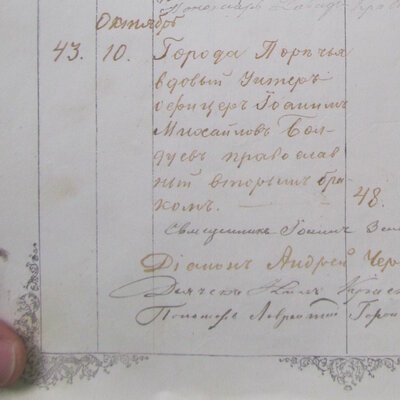 Октября
43. 10. Города Порѣчья
вдовый Унтеръ-
офицеръ Іоаннъ
Михайловъ Бол-
дуевъ православ
ный вторымъ бра-
комъ. 48.
Священникъ Іоаннъ
Діаконъ Андрей Чер
Дьячекъ
Пономарь Лаврентій